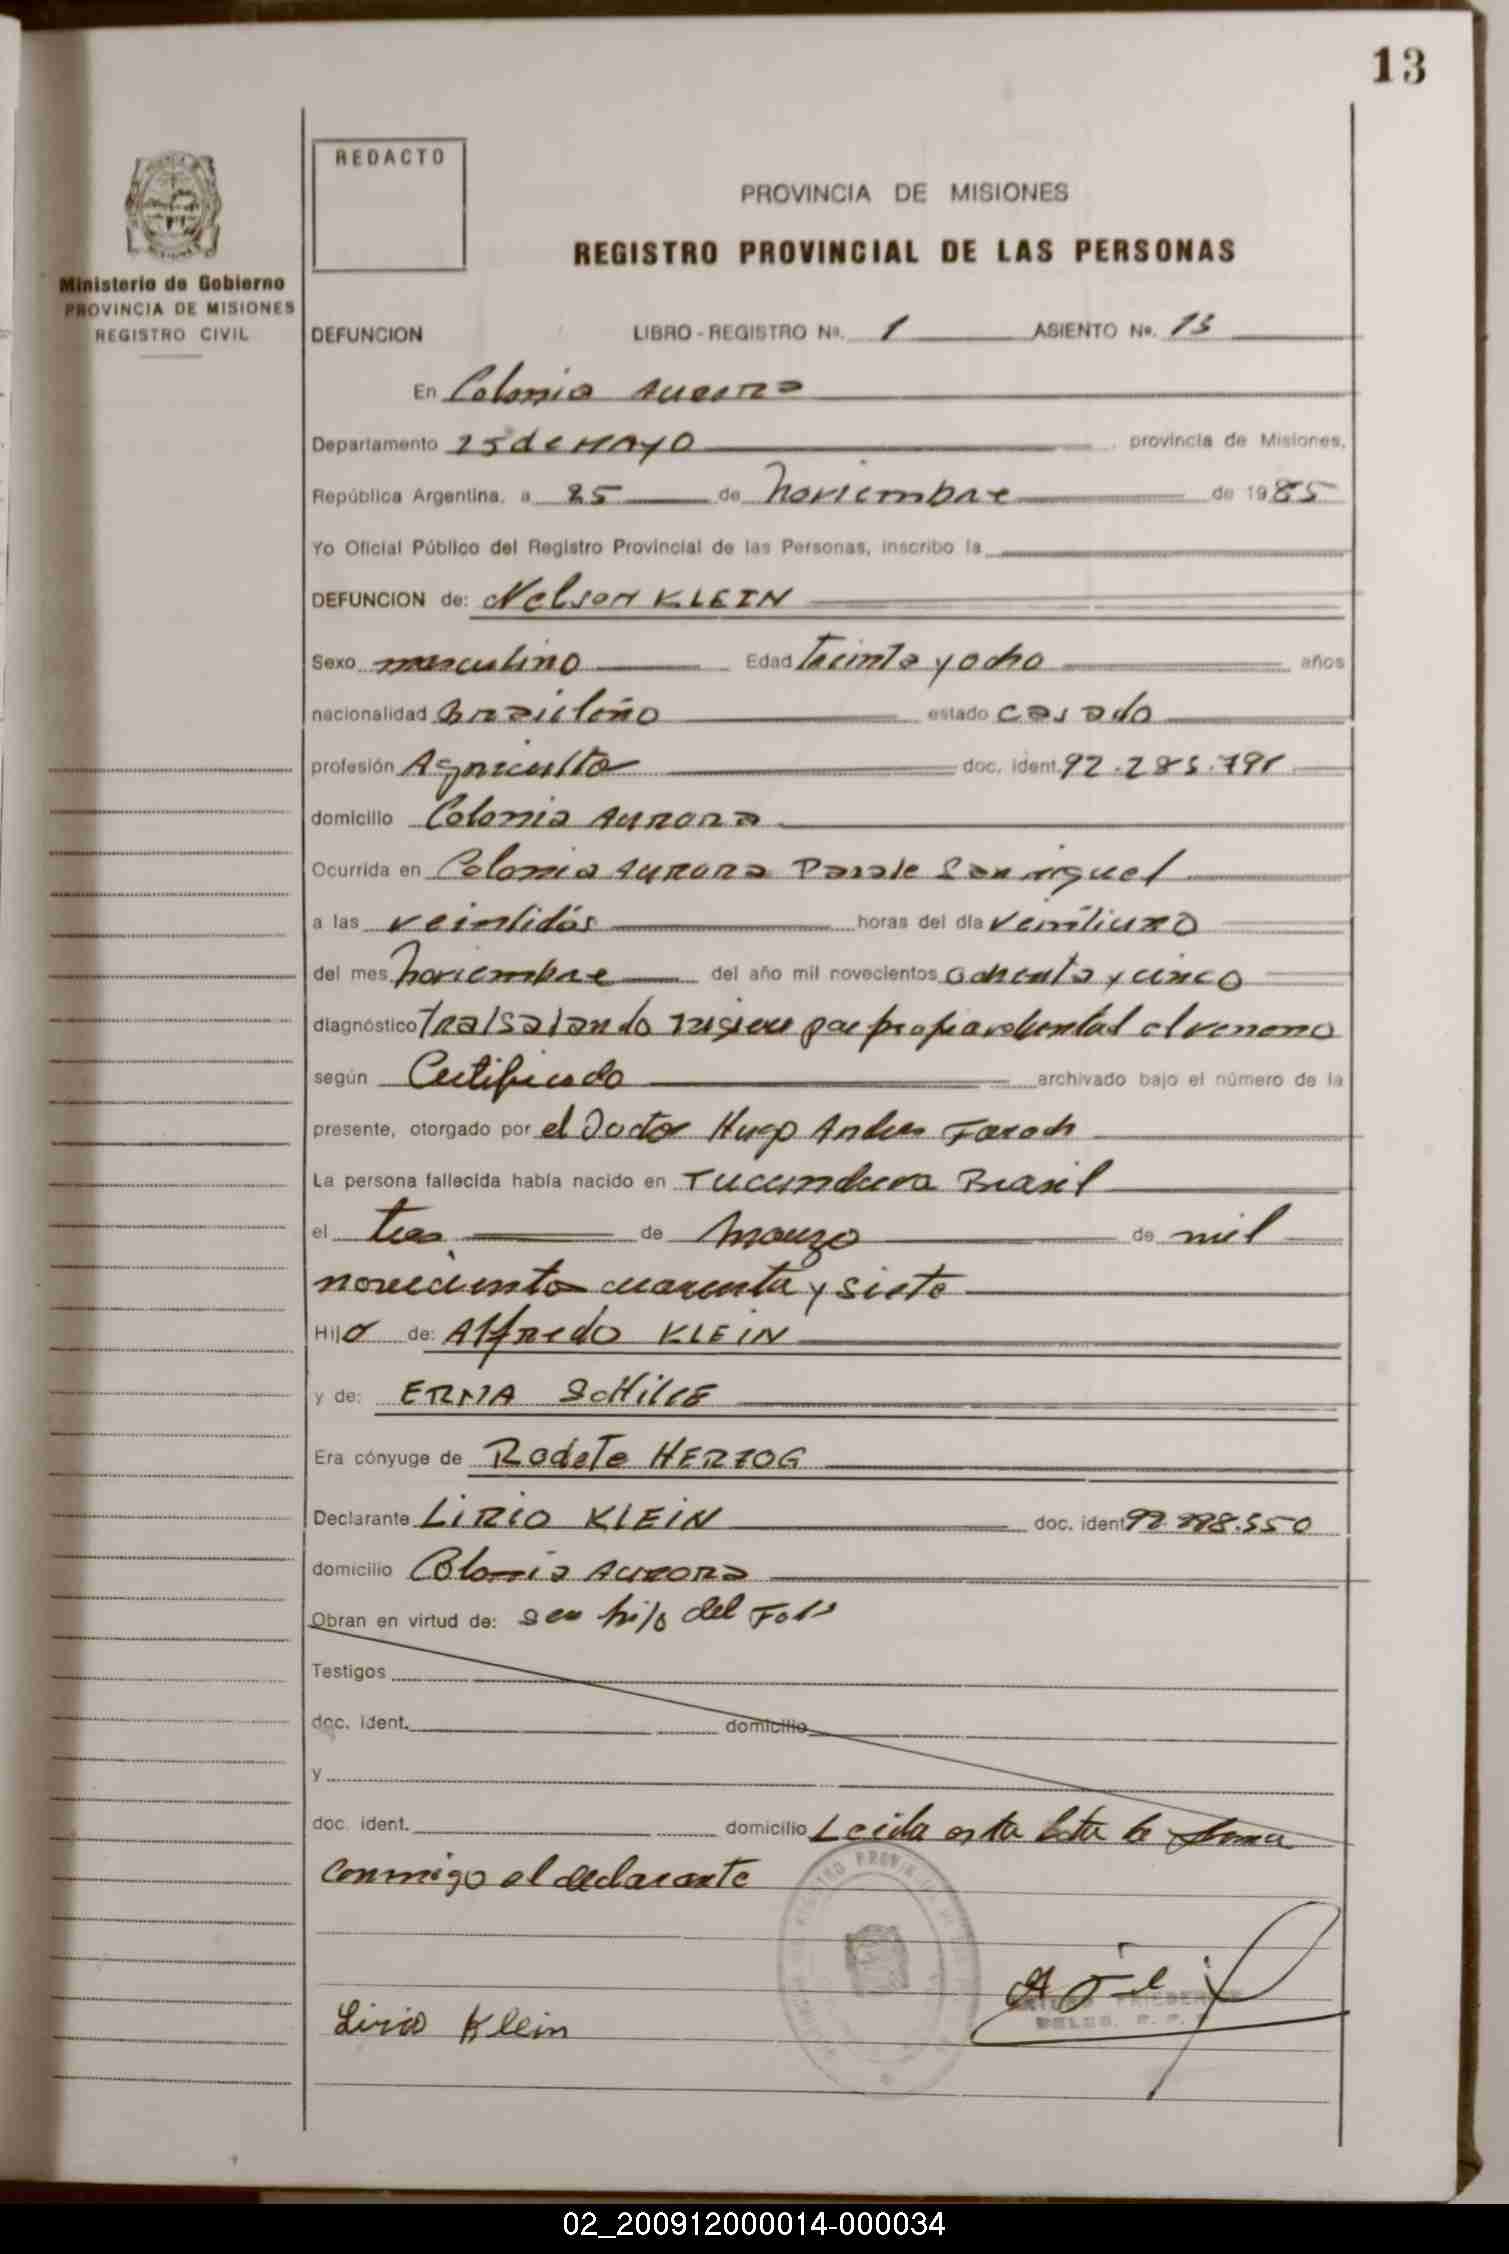 13
REDACTO
PROVINCIA DE MISIONES
REGISTRO PROVINCIAL DE LAS PERSONAS
Ministerio de Gobierno
PROVINCIA DE MISIONES
REGISTRO CIVIL
DEFUNCION LIBRO - REGISTRO No. 1 ASIENTO No. 13
En Colonia Aurora
Departamento 25 de MAYO provincia de Misiones,
República Argentina, a 25 de noviembre de 1985
Yo Oficial Público del Registro Provincial de las Personas, inscribo la
DEFUNCION de: Nelson KLEIN
Sexo masculino Edad treinta y ocho años
nacionalidad Brasileño estado casado
profesión Agricultor doc. ident. 92.285.791
domicilio Colonia Aurora
Ocurrida en Colonia Aurora Paraje San Miguel
a las veintidós horas del día veintiuno
del mes noviembre del año mil novecientos ochenta y cinco
diagnóstico por propia voluntad el veneno
según Certificado archivado bajo el número de la
presente, otorgado por el Doctor Hugo Andres
La persona fallecida había nacido en Tucunduva Brasil
el tres de Marzo de mil
novecientos cuarenta y siete
Hijo de: Alfredo KLEIN
y de: ERMA
Era cónyuge de Rodete HERZOG
Declarante LIRIO KLEIN doc. ident. 550
domicilio Colonia Aurora
Obran en virtud de: ser hijo del
Testigos
doc. ident. domicilio
y
doc. ident. domicilio Leida esta la firma
conmigo el declarante
Lirio Klein
02_200912000014-000034